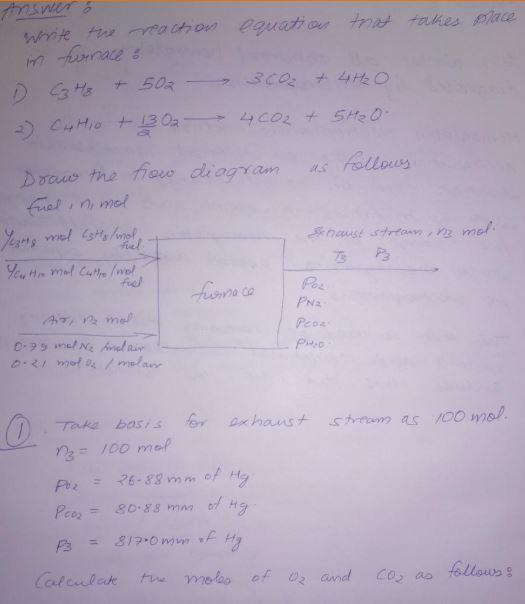 Answer:
Write the reaction equation that takes place
in furnace:
1) C3H8 + 5O2 → 3CO2 + 4H2O
2) C4H10 + 13/2 O2 → 4CO2 + 5H2O.
Draw the flow diagram as follows
fuel, n, mol
yC3H8 mol C3H8/mol fuel
yC4H10 mol C4H10/mol fuel
Air, n2 mol
0.79 mol N2/mol air
0.21 mol O2/mol air
furnace
Exhaust stream, n3 mol.
T3 P3
PO2
PN2
PCO2
PH2O
1 Take basis for exhaust stream as 100 mol.
n3 = 100 mol
PO2 = 26.88 mm of Hg
PCO2 = 80.88 mm of Hg
P3 = 817.0 mm of Hg
Calculate the moles of O2 and CO2 as follows: